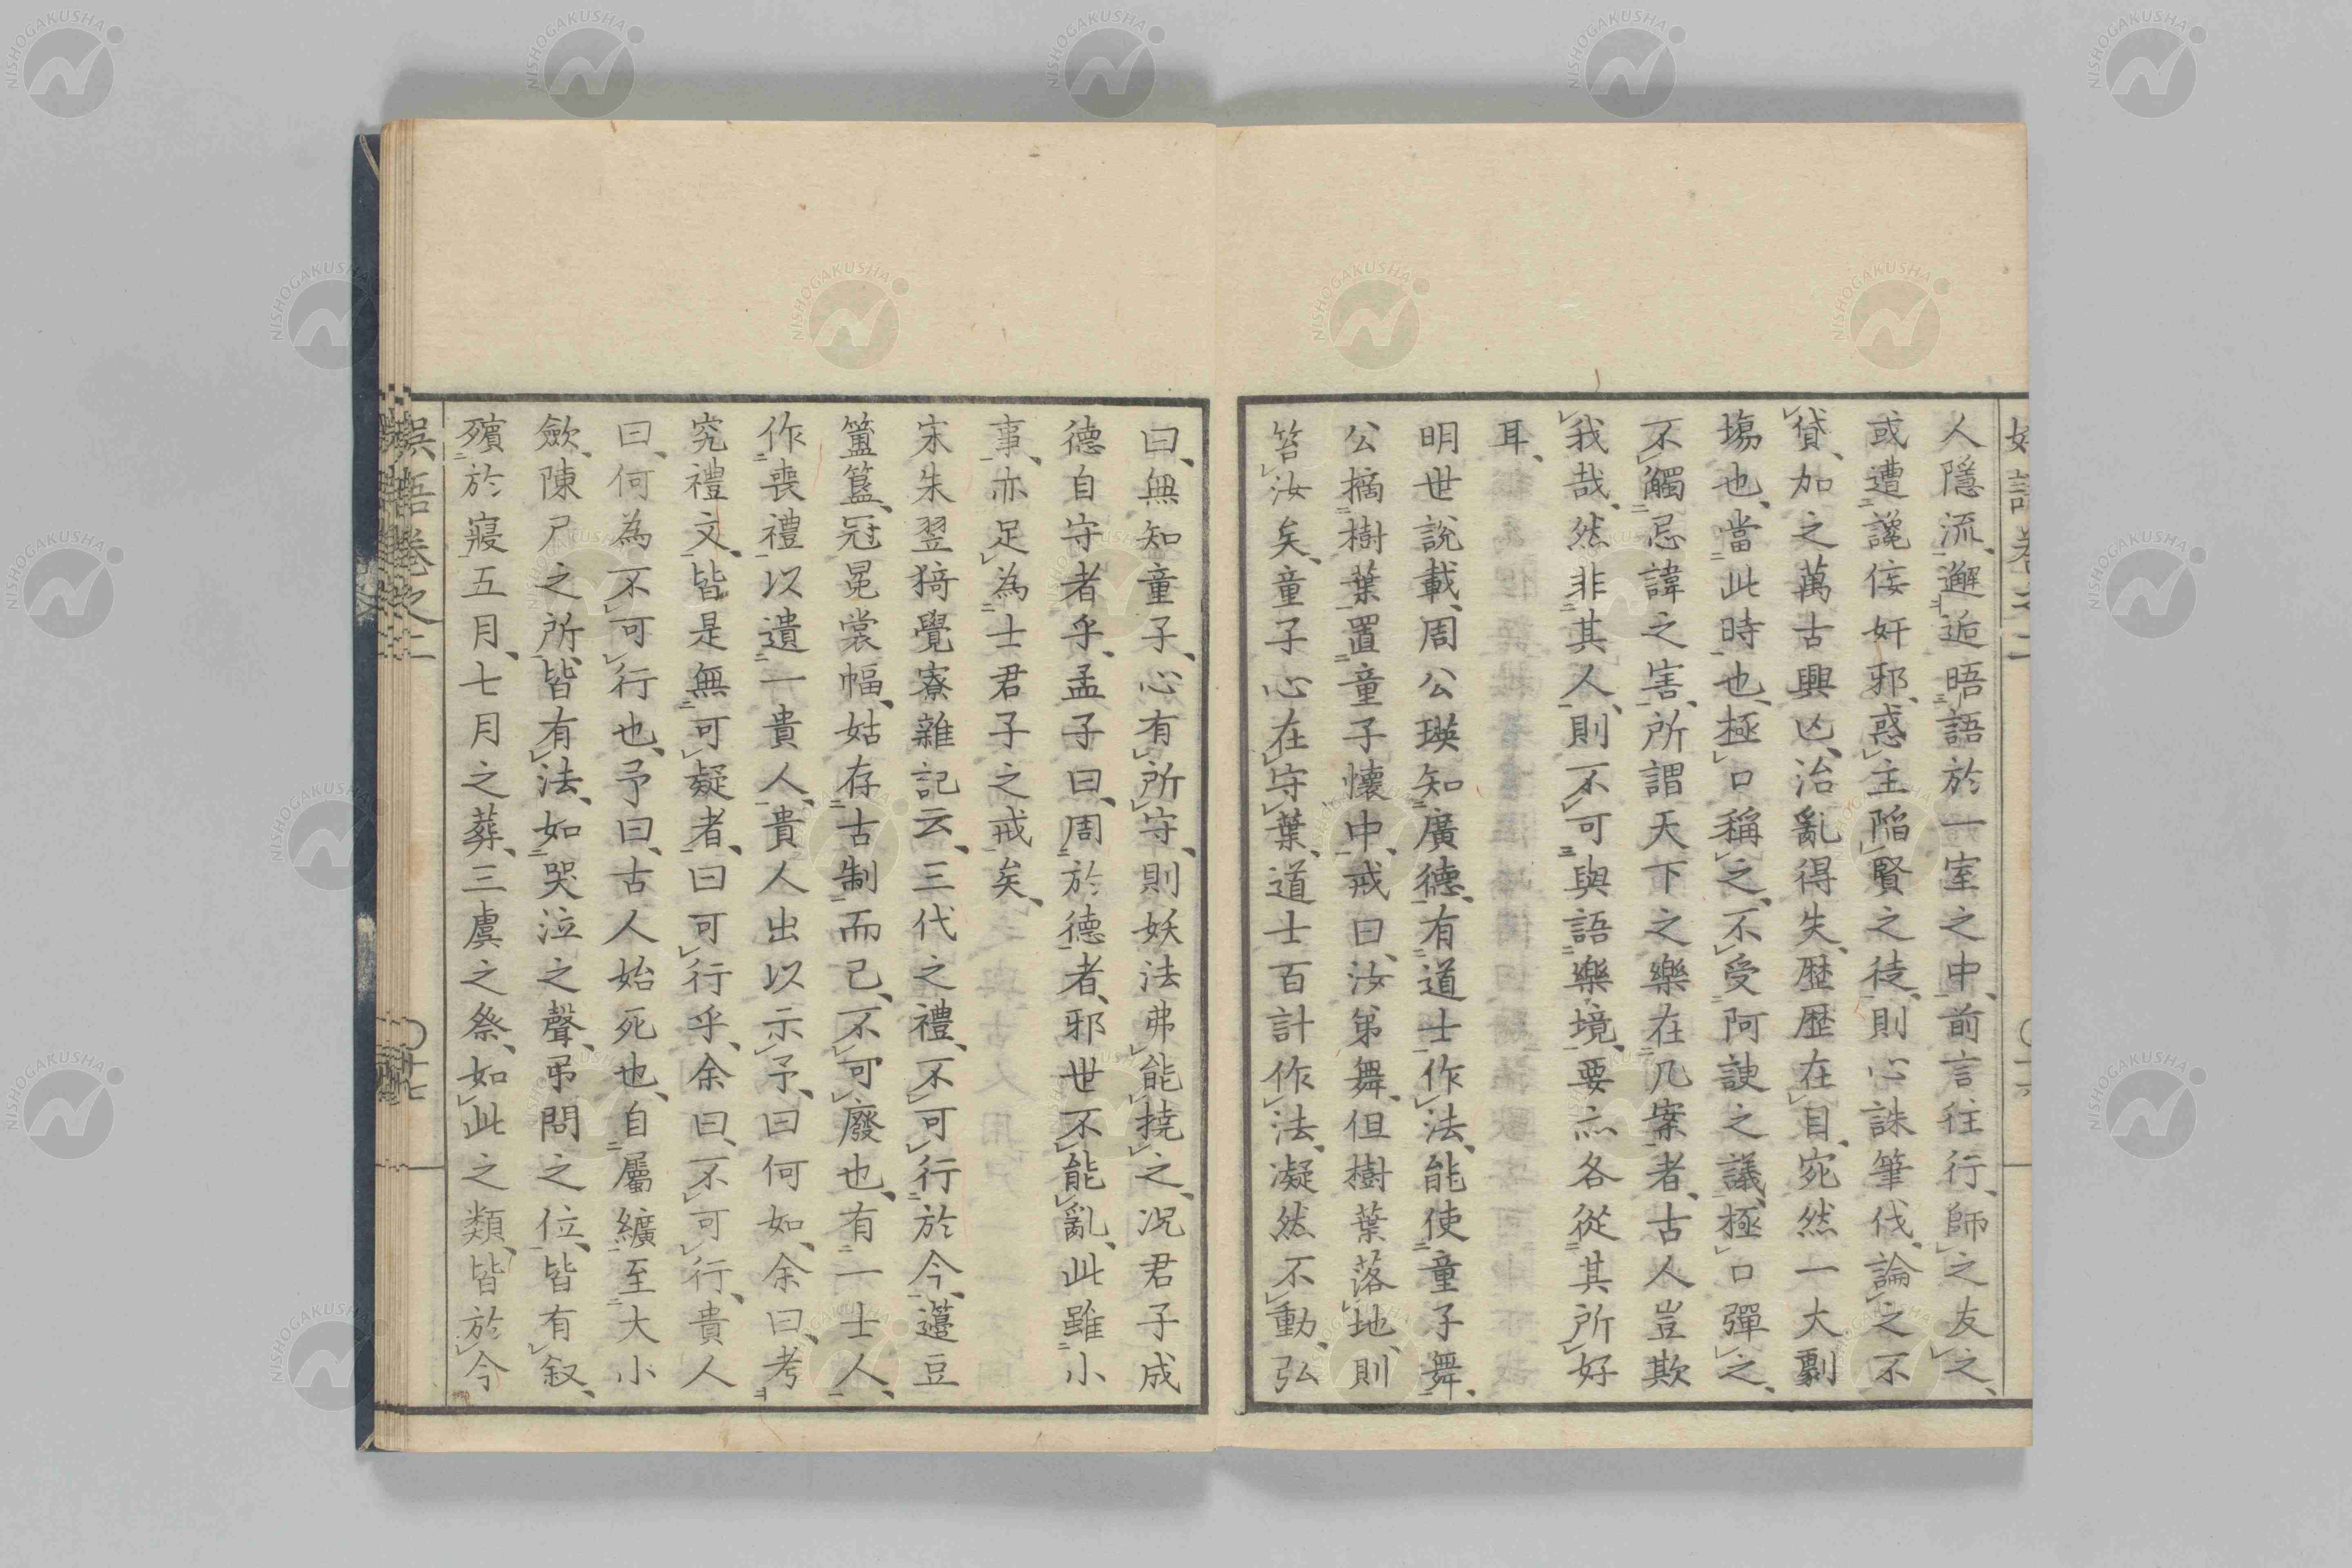 人隱流、邂逅晤語於一室之中、前言往行、師之友之、
或遭讒侫奸邪、惑主陷賢之徒、則心誅筆伐、論之不
貸、加之萬古興凶、治亂得失、歴歴在目、宛然一大劇
塲也、當此時也、極口稱之、不受阿諛之議、極口彈之、
不觸忌諱之害、所謂天下之樂在几案者、古人豈欺
我哉、然非其人、則不可與語樂境、要亦各從其所好
耳、
明世說載、周公瑛知廣德、有道士作法、能使童子舞、
公摘樹葉置童子懷中、戒曰、汝第舞、但樹葉落地、則
笞汝矣、童子心在守葉、道士百計作法、凝然不動、弘
曰、無知童子、心有所守、則妖法弗能撓之、况君子成
德自守者乎、孟子曰、周於德者、邪世不能亂、此雖小
事、亦足為士君子之戒矣、
宋朱翌猗覺寮雜記云、三代之禮、不可行於今、籩豆
簠簋、冠冕裳幅、姑存古制而已、不可廢也、有一士人、
作喪禮以遺一貴人、貴人出以示予、曰何如、余曰、考
究禮文、皆是無可疑者、曰可行乎、余曰、不可行、貴人
曰、何為不可行也、予曰、古人始死也、自屬纊至大小
歛、陳尸之所、皆有法、如哭泣之聲、弔問之位、皆有叙、
殯於寢五月、七月之葬、三虞之祭、如此之類、皆於今
娛語卷之二
〇十七
NISHOGAKUSHA